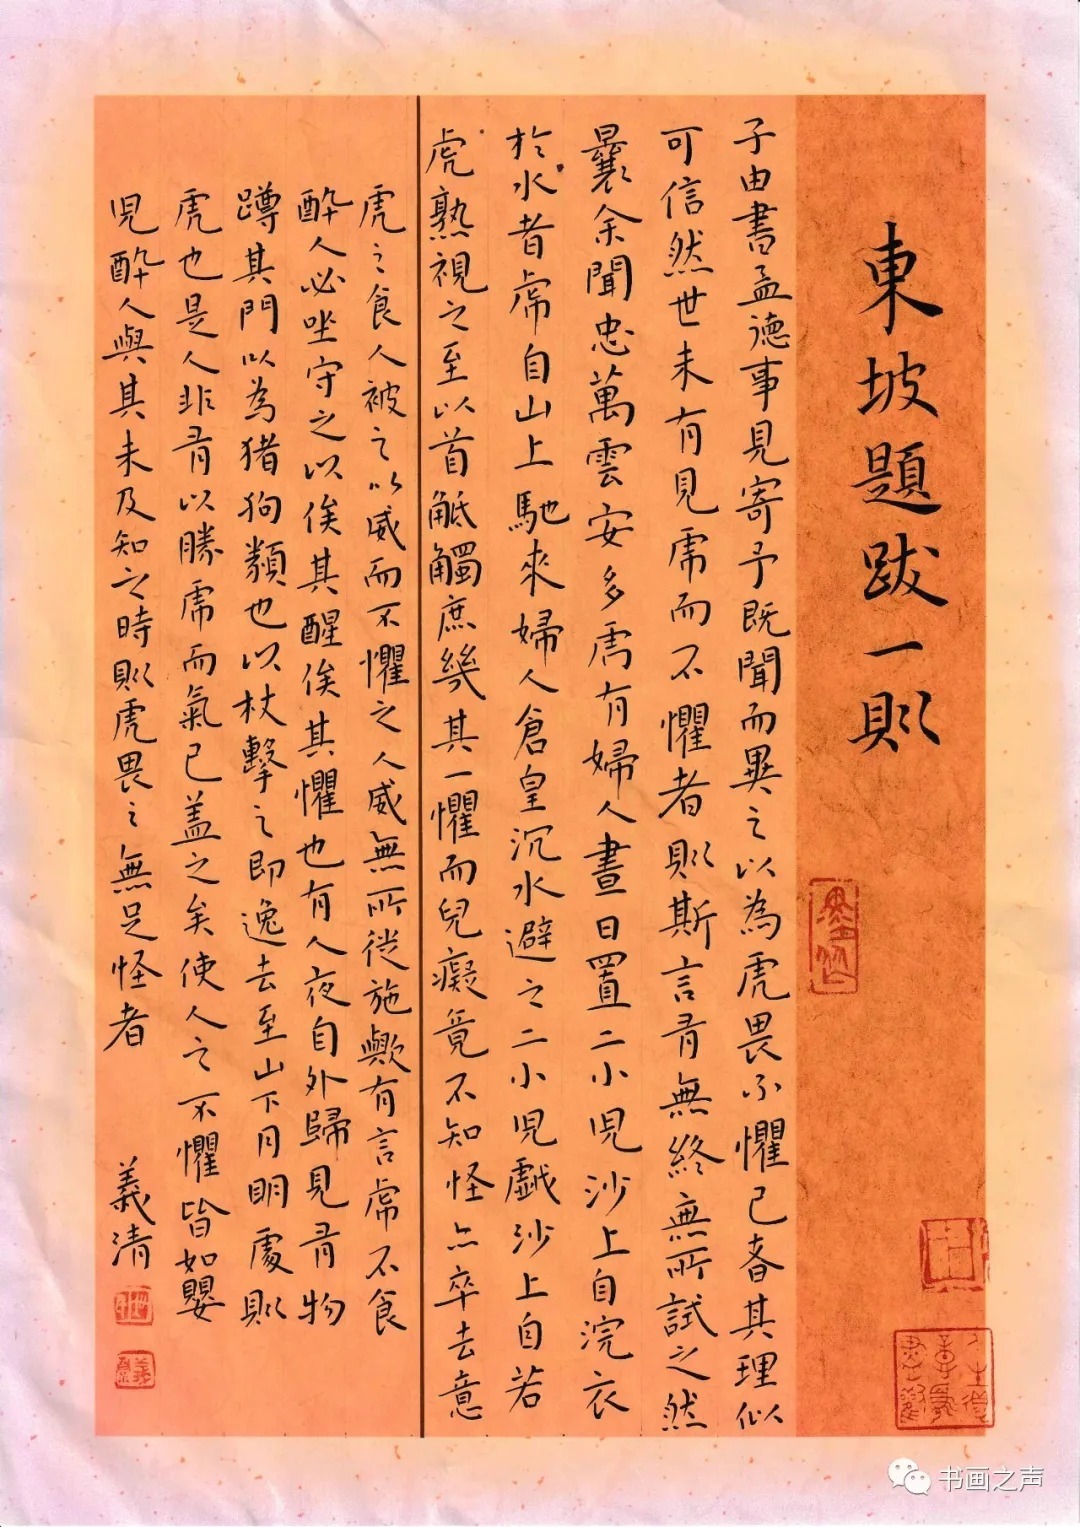 東坡題跋一則
子由書孟德事見寄予既聞而異之以為虎畏不懼己者其理似
可信然世未有見虎而不懼者則斯言有無終無所試之然
曩余聞忠萬雲安多虎有婦人晝日置二小兒沙上自浣衣
於水者虎自山上馳來婦人倉皇沉水避之二小兒戲沙上自若
虎熟視之至以首觝觸庶幾其一懼而兒癡竟不知怪亦卒去意
虎之食人被之以威而不懼之人威無所從施歟有言虎不食
醉人必坐守之以俟其醒俟其懼也有人夜自外歸見有物
蹲其門以為猪狗類也以杖擊之即逸去至山下月明處則
虎也是人非有以勝虎而氣已盖之矣使人之不懼皆如嬰
兒醉人與其未及知之時則虎畏之無足怪者
義清
书画之声